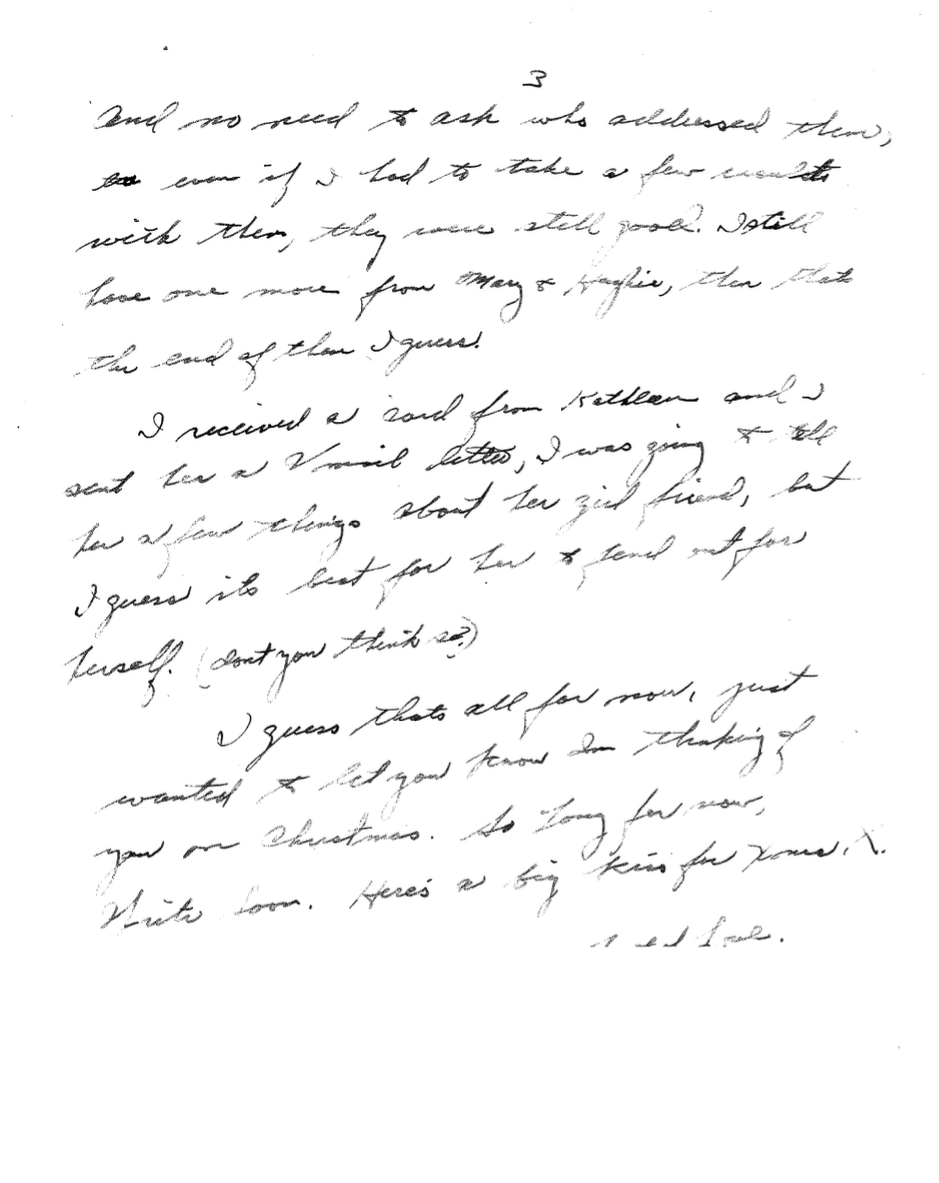 3
and no need to ask who addressed them,
even if I had to take a few
with them, they were still good. I still
have one more from Mary & Hughie, then thats
the end of them I guess.
I received a card from Kathleen and I
sent her a V mail letter, I was going to tell
her a few things about her girl friend, but
I guess its best for her to fend out for
herself. (dont you think so?)
I guess thats all for now, just
wanted to let you know Im thinking of
you on Christmas. So Long for now,
Write Soon. Here's a big kiss for Xmas. X.